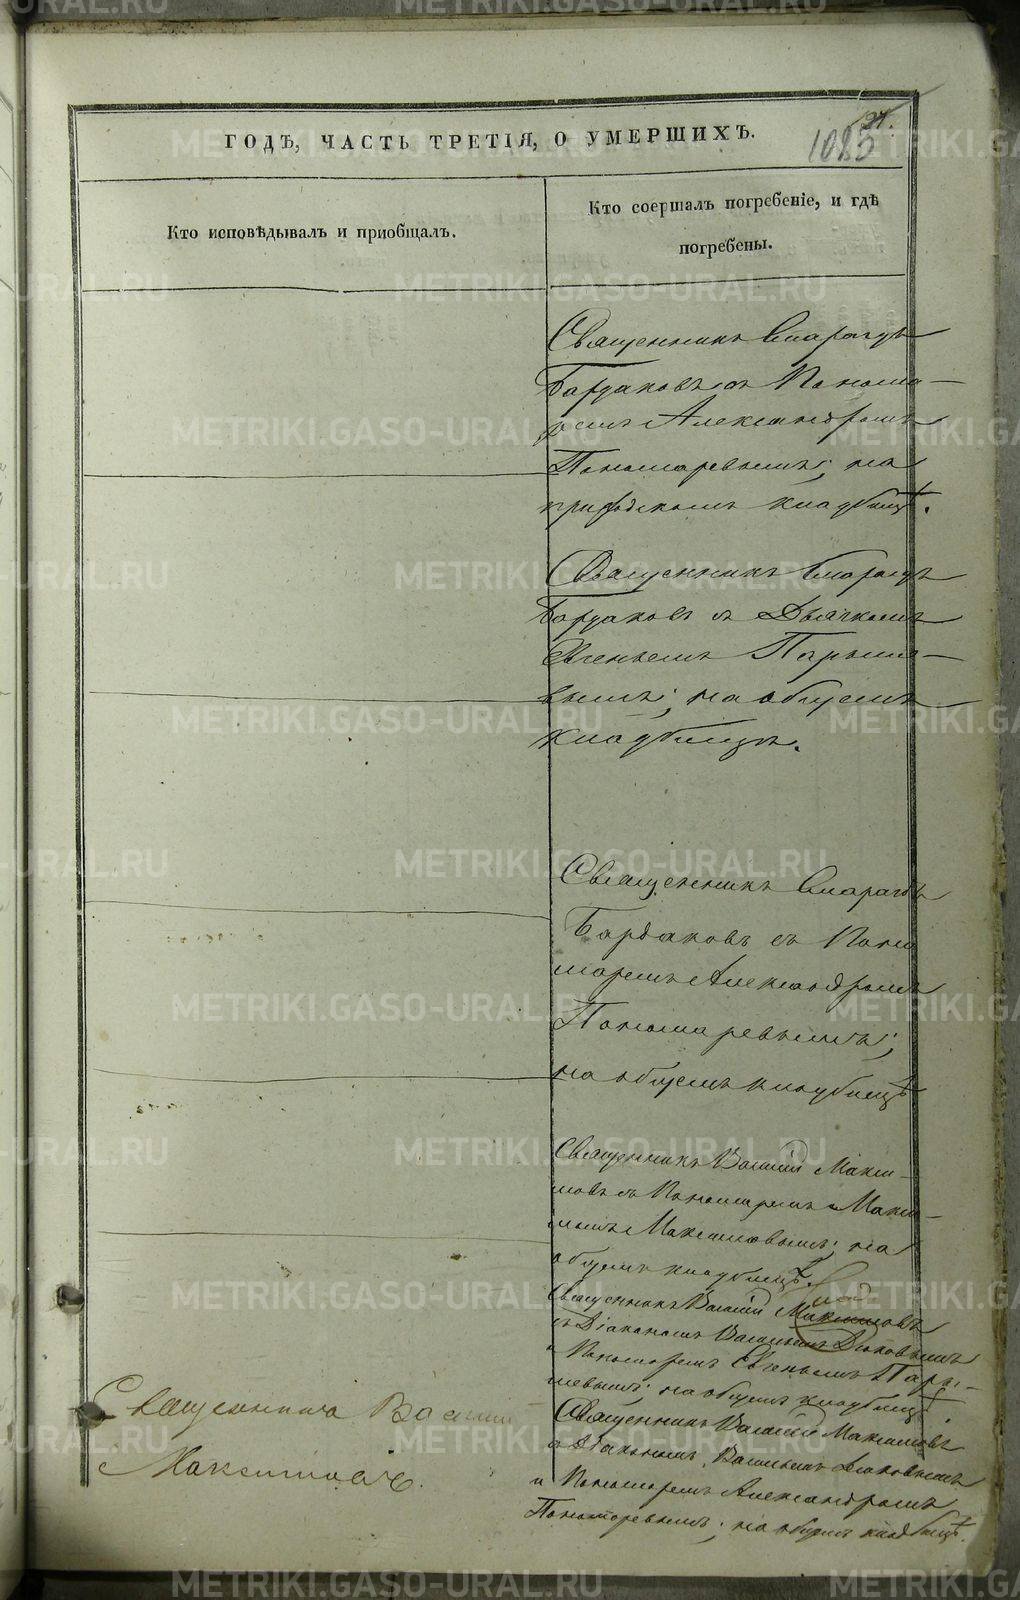 ГОДЪ, ЧАСТЬ ТРЕТІЯ, О УМЕРШИХЪ.
27.
1085
Кто исповѣдывалъ и пріобщалъ.
Кто соершалъ погребеніе, и гдѣ
погребены.
Священникъ Смарагдъ
Бардаковъ съ Понома-
ремъ Александромъ
Пономаревымъ; на
приходскомъ кладбищѣ.
Священникъ Смарагдъ
Бардаковъ съ Дьячкомъ
Евгеньемъ Парыше-
вымъ; на общемъ
кладбищѣ.
Священникъ Смарагдъ
Бардаковъ съ Поно
маремъ Александромъ
Пономаревымъ;
на общемъ кладбищѣ
Священникъ Василій Макси-
мовъ съ Пономаремъ Макси-
момъ Максимовымъ; на
общемъ кладбищѣ.
Священникъ Василій Максимовъ
съ Діакономъ Васильемъ Дюковымъ
и Пономаремъ Евгеньемъ Пары-
шевымъ; на общемъ кладбищѣ
Священникъ Василій Максимовъ
съ Діакономъ Васильемъ Дюковымъ
и Пономаремъ Александромъ
Пономаревымъ; на общемъ кладбищѣ.
Священникъ Васили
Максимовъ.
METRIKI.GASO-URAL.RU